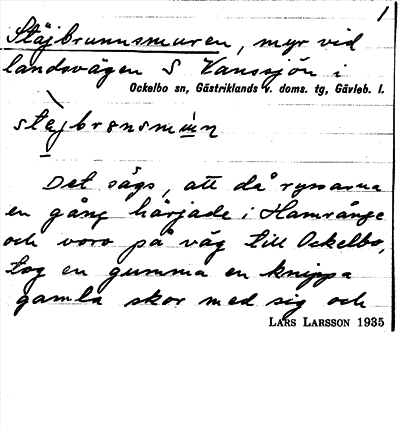 1
Stäjbrunnsmuren, myr vid
landsvägen S Vansjön i
Ockelbo sn, Gästriklands v. doms. tg, Gävleb. l.
Det sägs, att då ryssarna
en gång härjade i Hamrånge
och voro på väg till Ockelbo,
tog en gumma en knippa
gamla skor med sig och
LARS LARSSON 1935